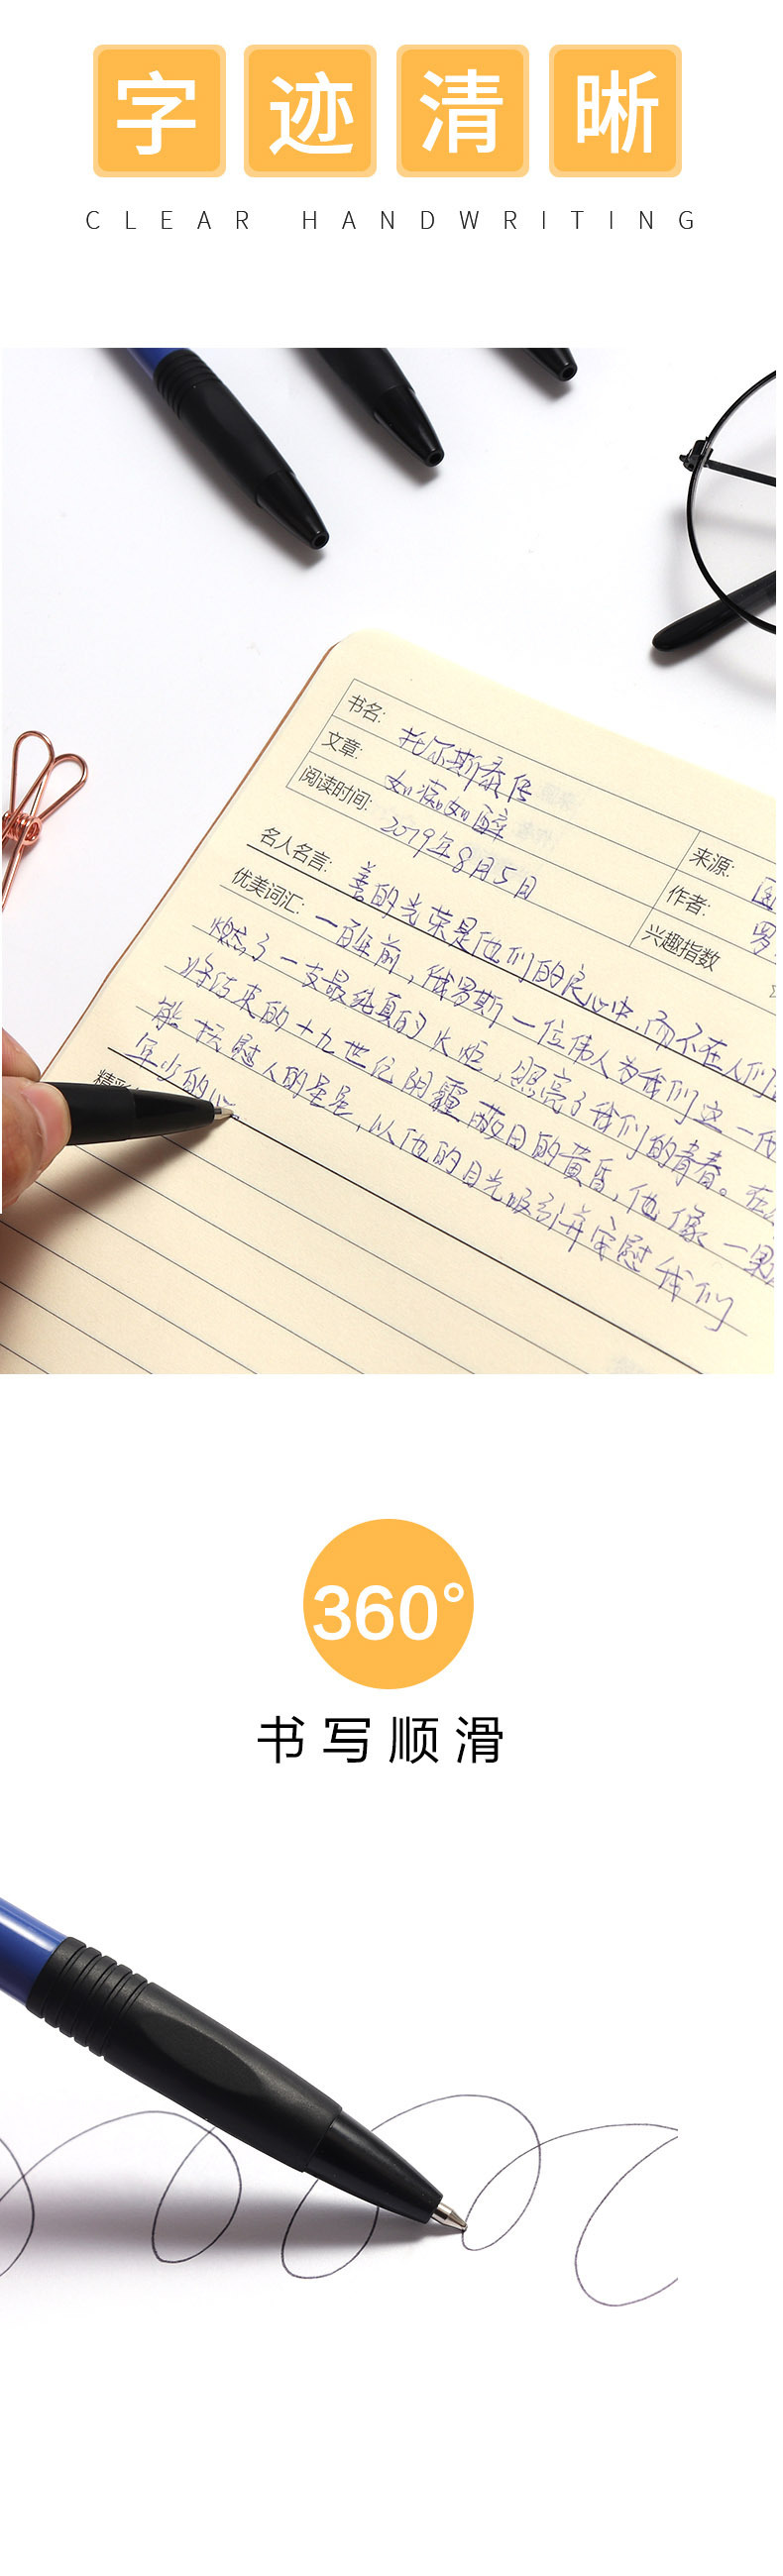 字迹清晰
CLEAR HANDWRITING
书名: 托尔斯泰传
文章: 如痴如醉
阅读时间: 2019年8月5日
来源:
作者: 罗
兴趣指数
名人名言: 善的光荣是他们的良心中,而不在人们
优美词汇: 一百年前,俄罗斯一位伟人为我们这一代
燃了一支最纯真的火炬,照亮了我们的青春。在
将结束的十九世纪阴霾蔽日的黄昏,他像一颗
能抚慰人的星星,以他的目光吸引并安慰我们
年少的心。
精彩
360°
书写顺滑